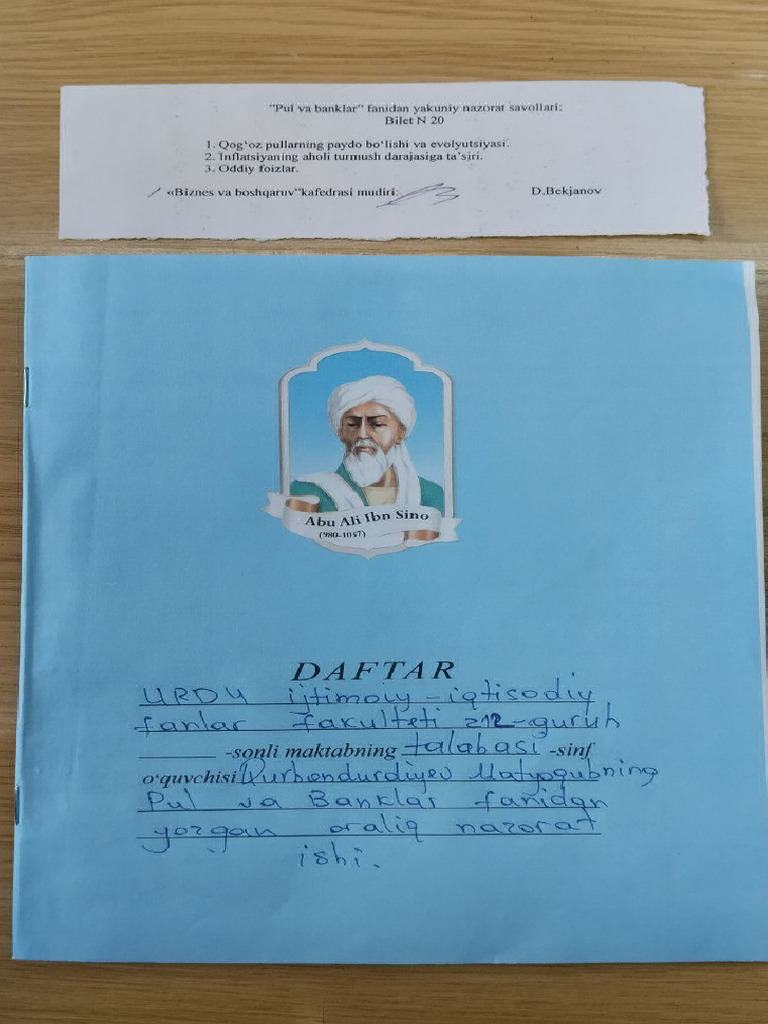 "Pul va banklar" fanidan yakuniy nazorat savollari:
Bilet N 20
1. Qog‘oz pullarning paydo bo‘lishi va evolyutsiyasi.
2. Inflatsiyaning aholi turmush darajasiga ta’siri.
3. Oddiy foizlar.
«Biznes va boshqaruv"kafedrasi mudiri: D.Bekjanov
Abu Ali Ibn Sino
(980-1037)
DAFTAR
URDU ijtimoiy-iqtisodiy
fanlar fakulteti 212-guruh
-sonli maktabning talabasi -sinf
o‘quvchisi Qurbondurdiyev Matyoqubning
Pul va Banklar fanidan
yozgan oraliq nazorat
ishi.